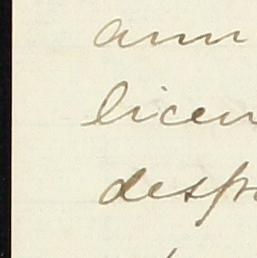 ann
licen
desp